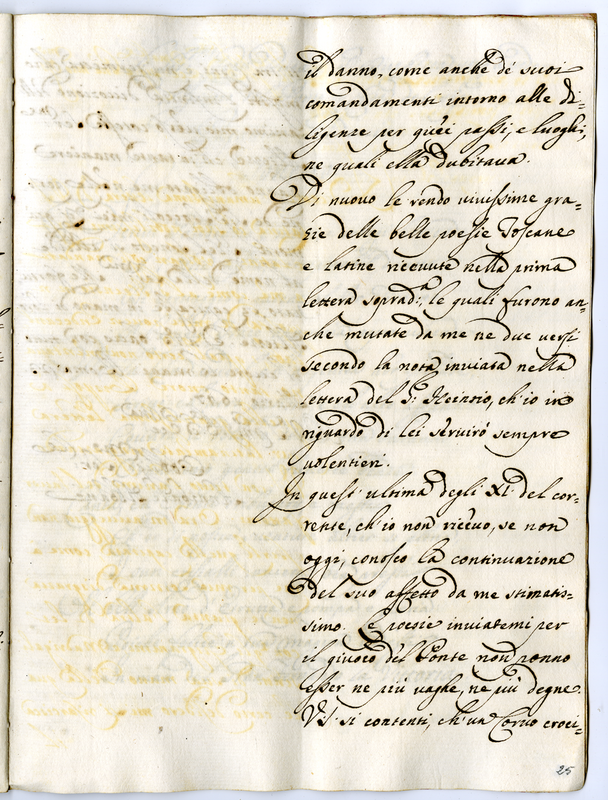 il danno, come anche dè suoi
comandamenti intorno alle di-
ligenze per quei passi, e luoghi,
ne quali ella dubitava.
Di nuovo le rendo vivissime gra-
zie delle belle poesie Toscane
e latine ricevute nella prima
lettera soprad.a, le quali furono an-
che mutate da me ne due versi
secondo la nota inviata nella
lettera del S.r Heinsio, ch'io in
riguardo di lei servirò sempre
volentieri.
In quest'ultima degli XI del cor-
rente, ch'io non ricevo, se non
oggi, conosco la continuazione
del suo affetto da me stimatis-
simo. Le poesie inviatemi per
il giuoco del Ponte non ponno
esser ne più vaghe, ne più degne.
VS. si contenti, ch'un Corvo croci-
25